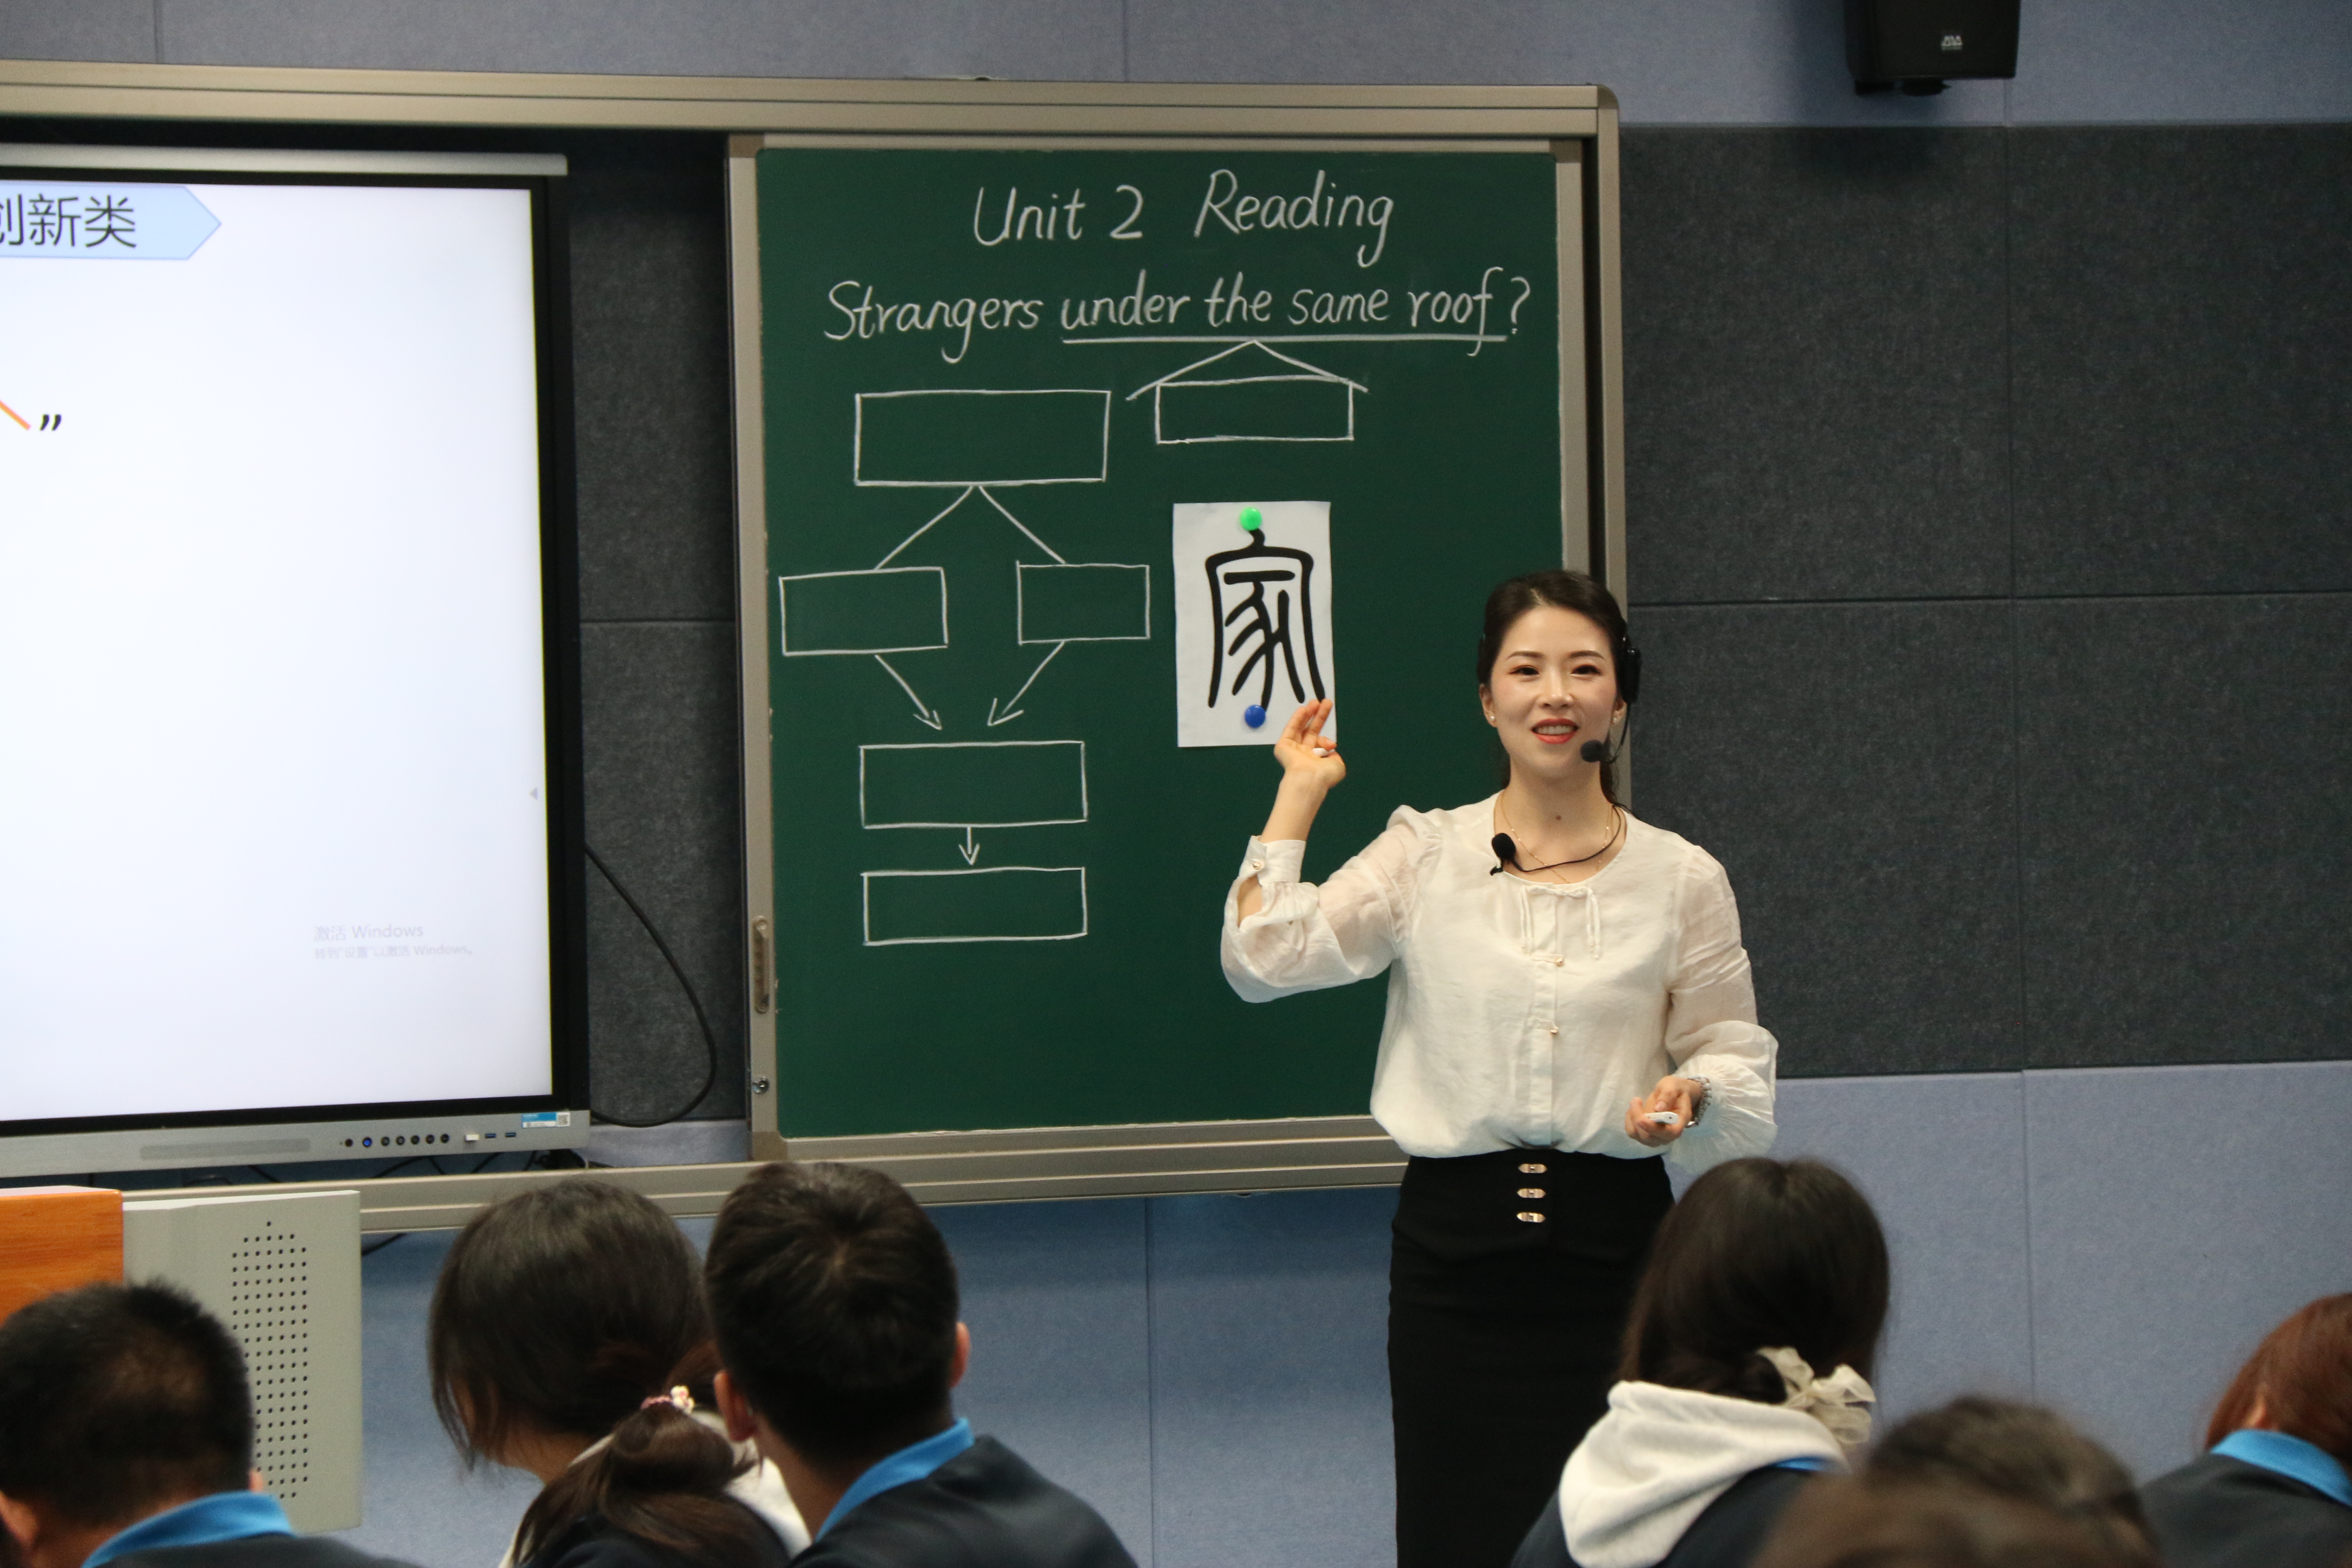 创新类
”
Unit 2 Reading
Strangers under the same roof?
家
激活 Windows
转到“设置”以激活 Windows。